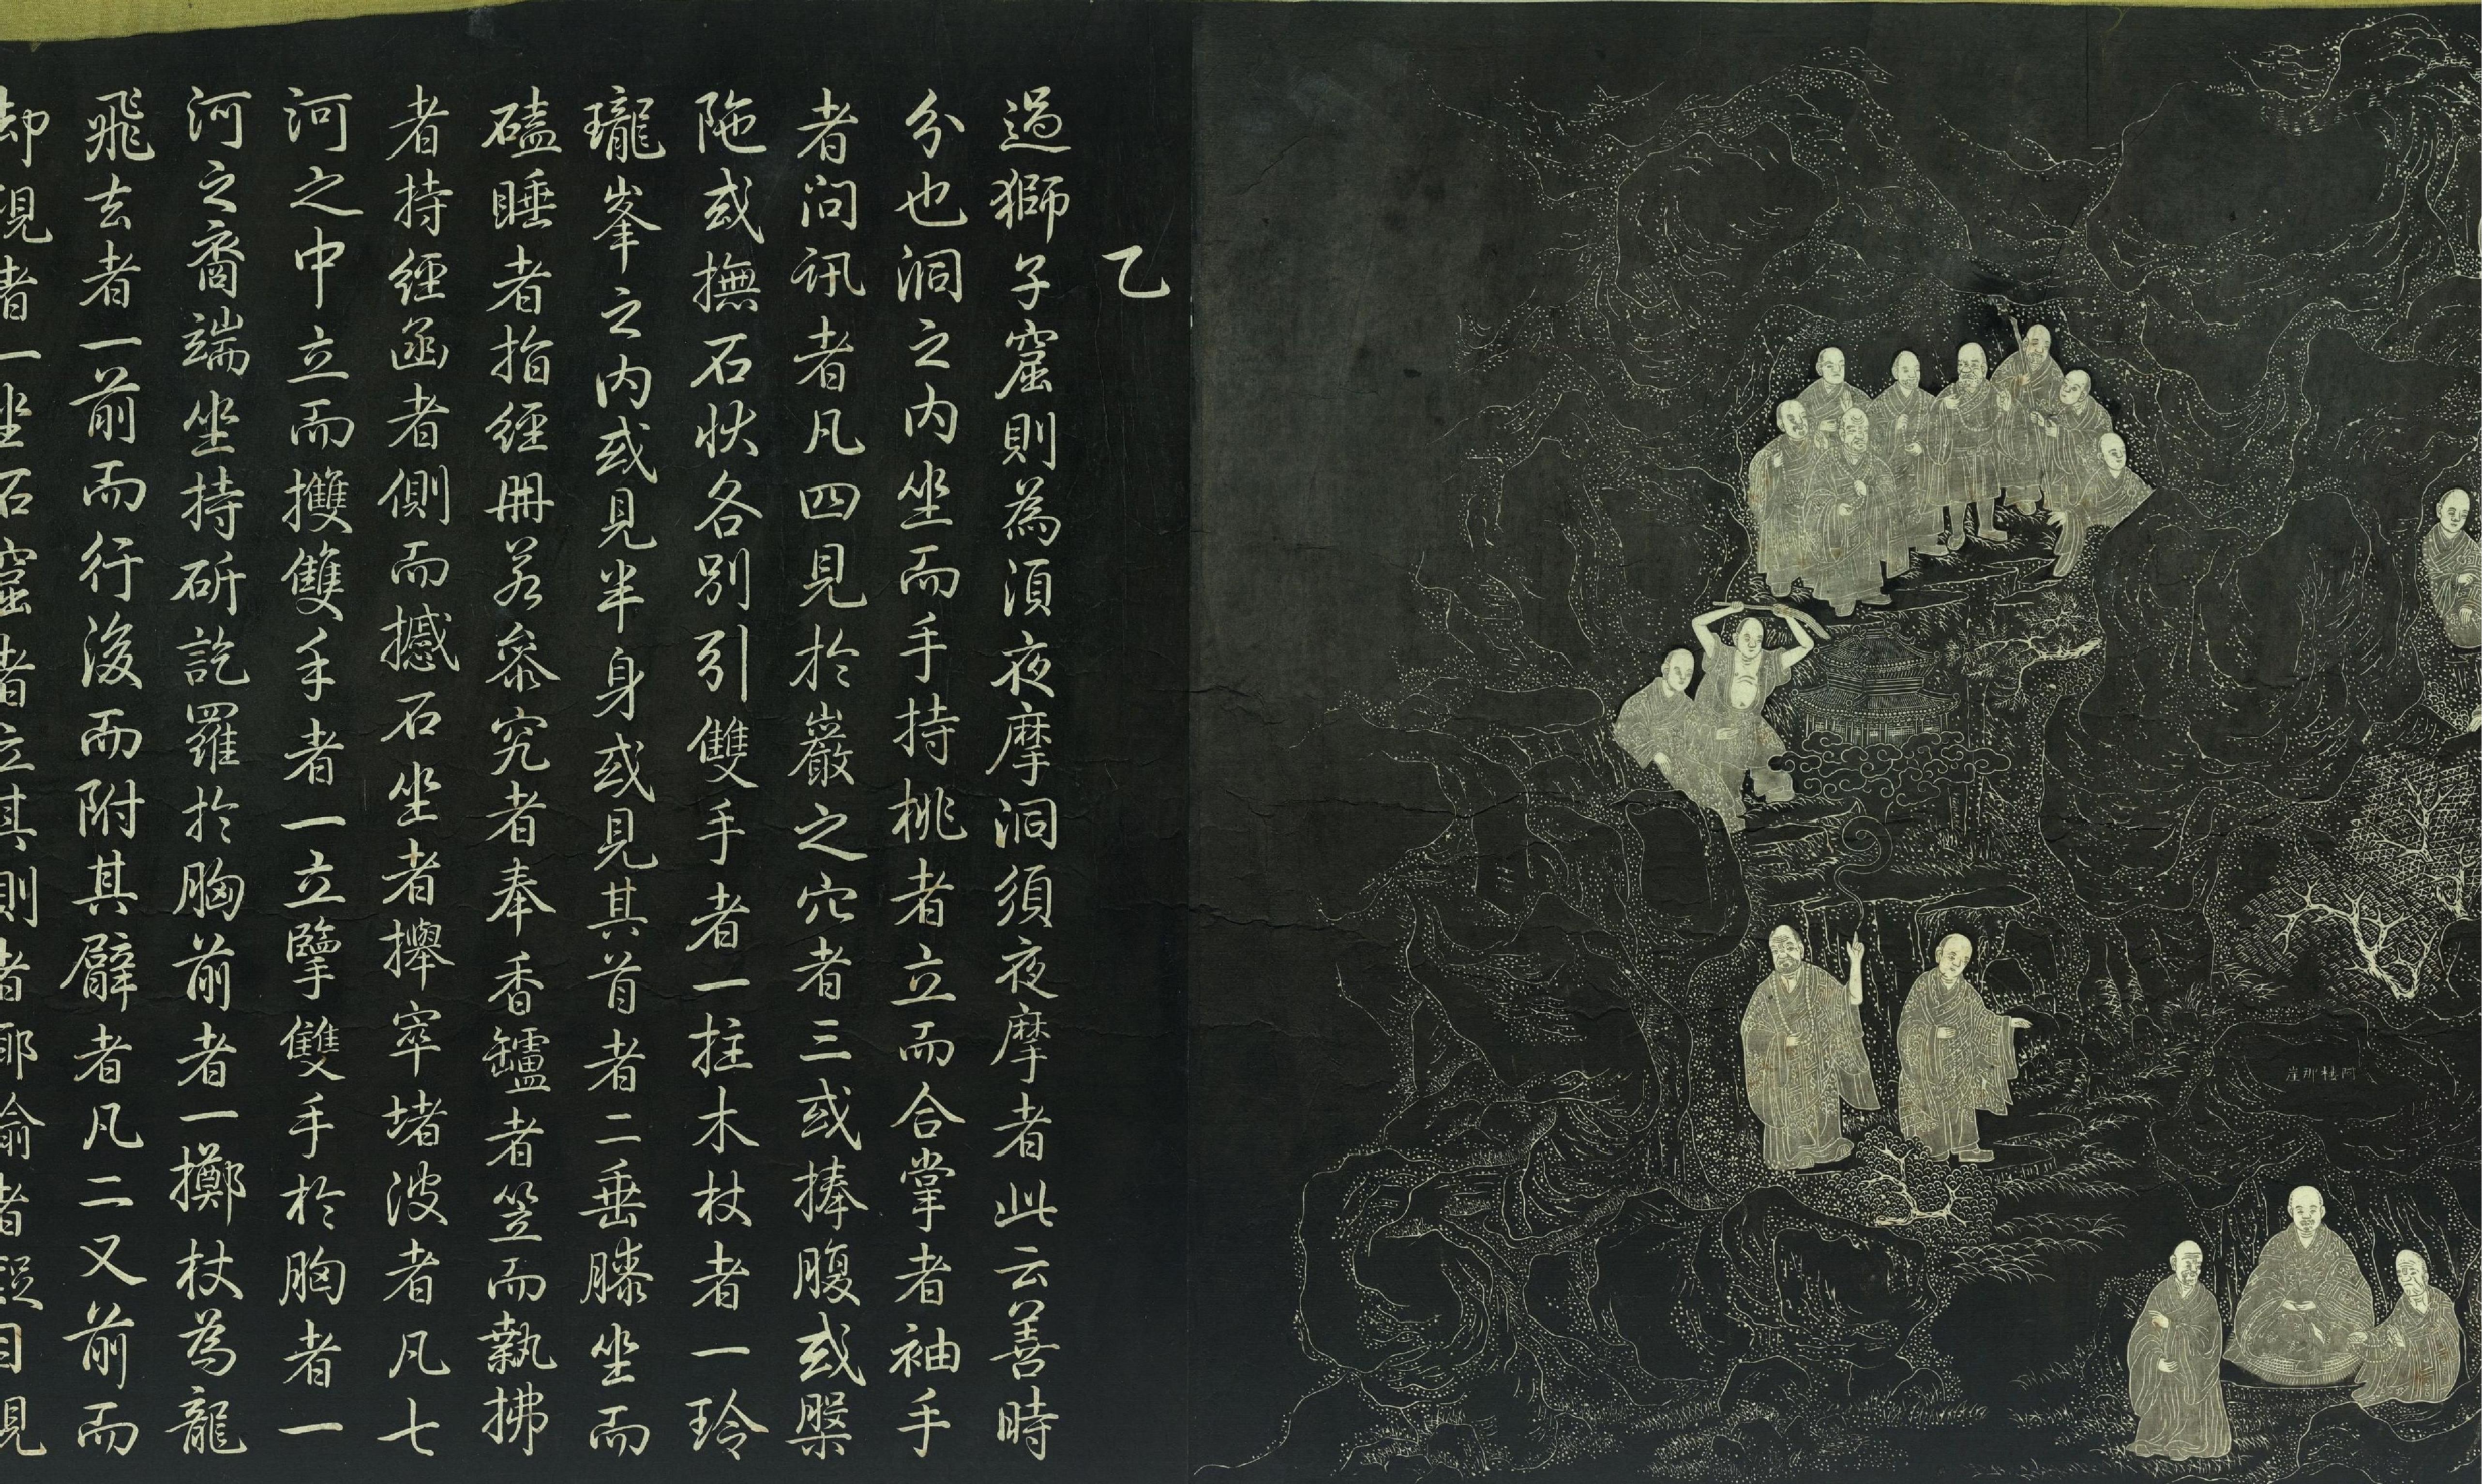 阿㝹那崖
乙
過獅子窟則為須夜摩洞須夜摩者此云善時
分也洞之內坐而手持桃者立而合掌者袖手
者問訊者凡四見於巖之穴者三或捧腹或槃
陁或撫石狀各別引雙手者一拄木杖者一玲
瓏峯之內或見半身或見其首者二垂膝坐而
磕睡者指經冊若叅究者奉香鑪者笠而執拂
者持經函者側而撼石坐者攑窣堵波者凡七
河之中立而擭雙手者一立擥雙手於胸者一
河之裔端坐持斫訖羅於胸前者一擲杖為龍
飛去者一前而行後而附其臂者凡二又前而
却現者一坐石窟者立其則者耶緰者怒目見